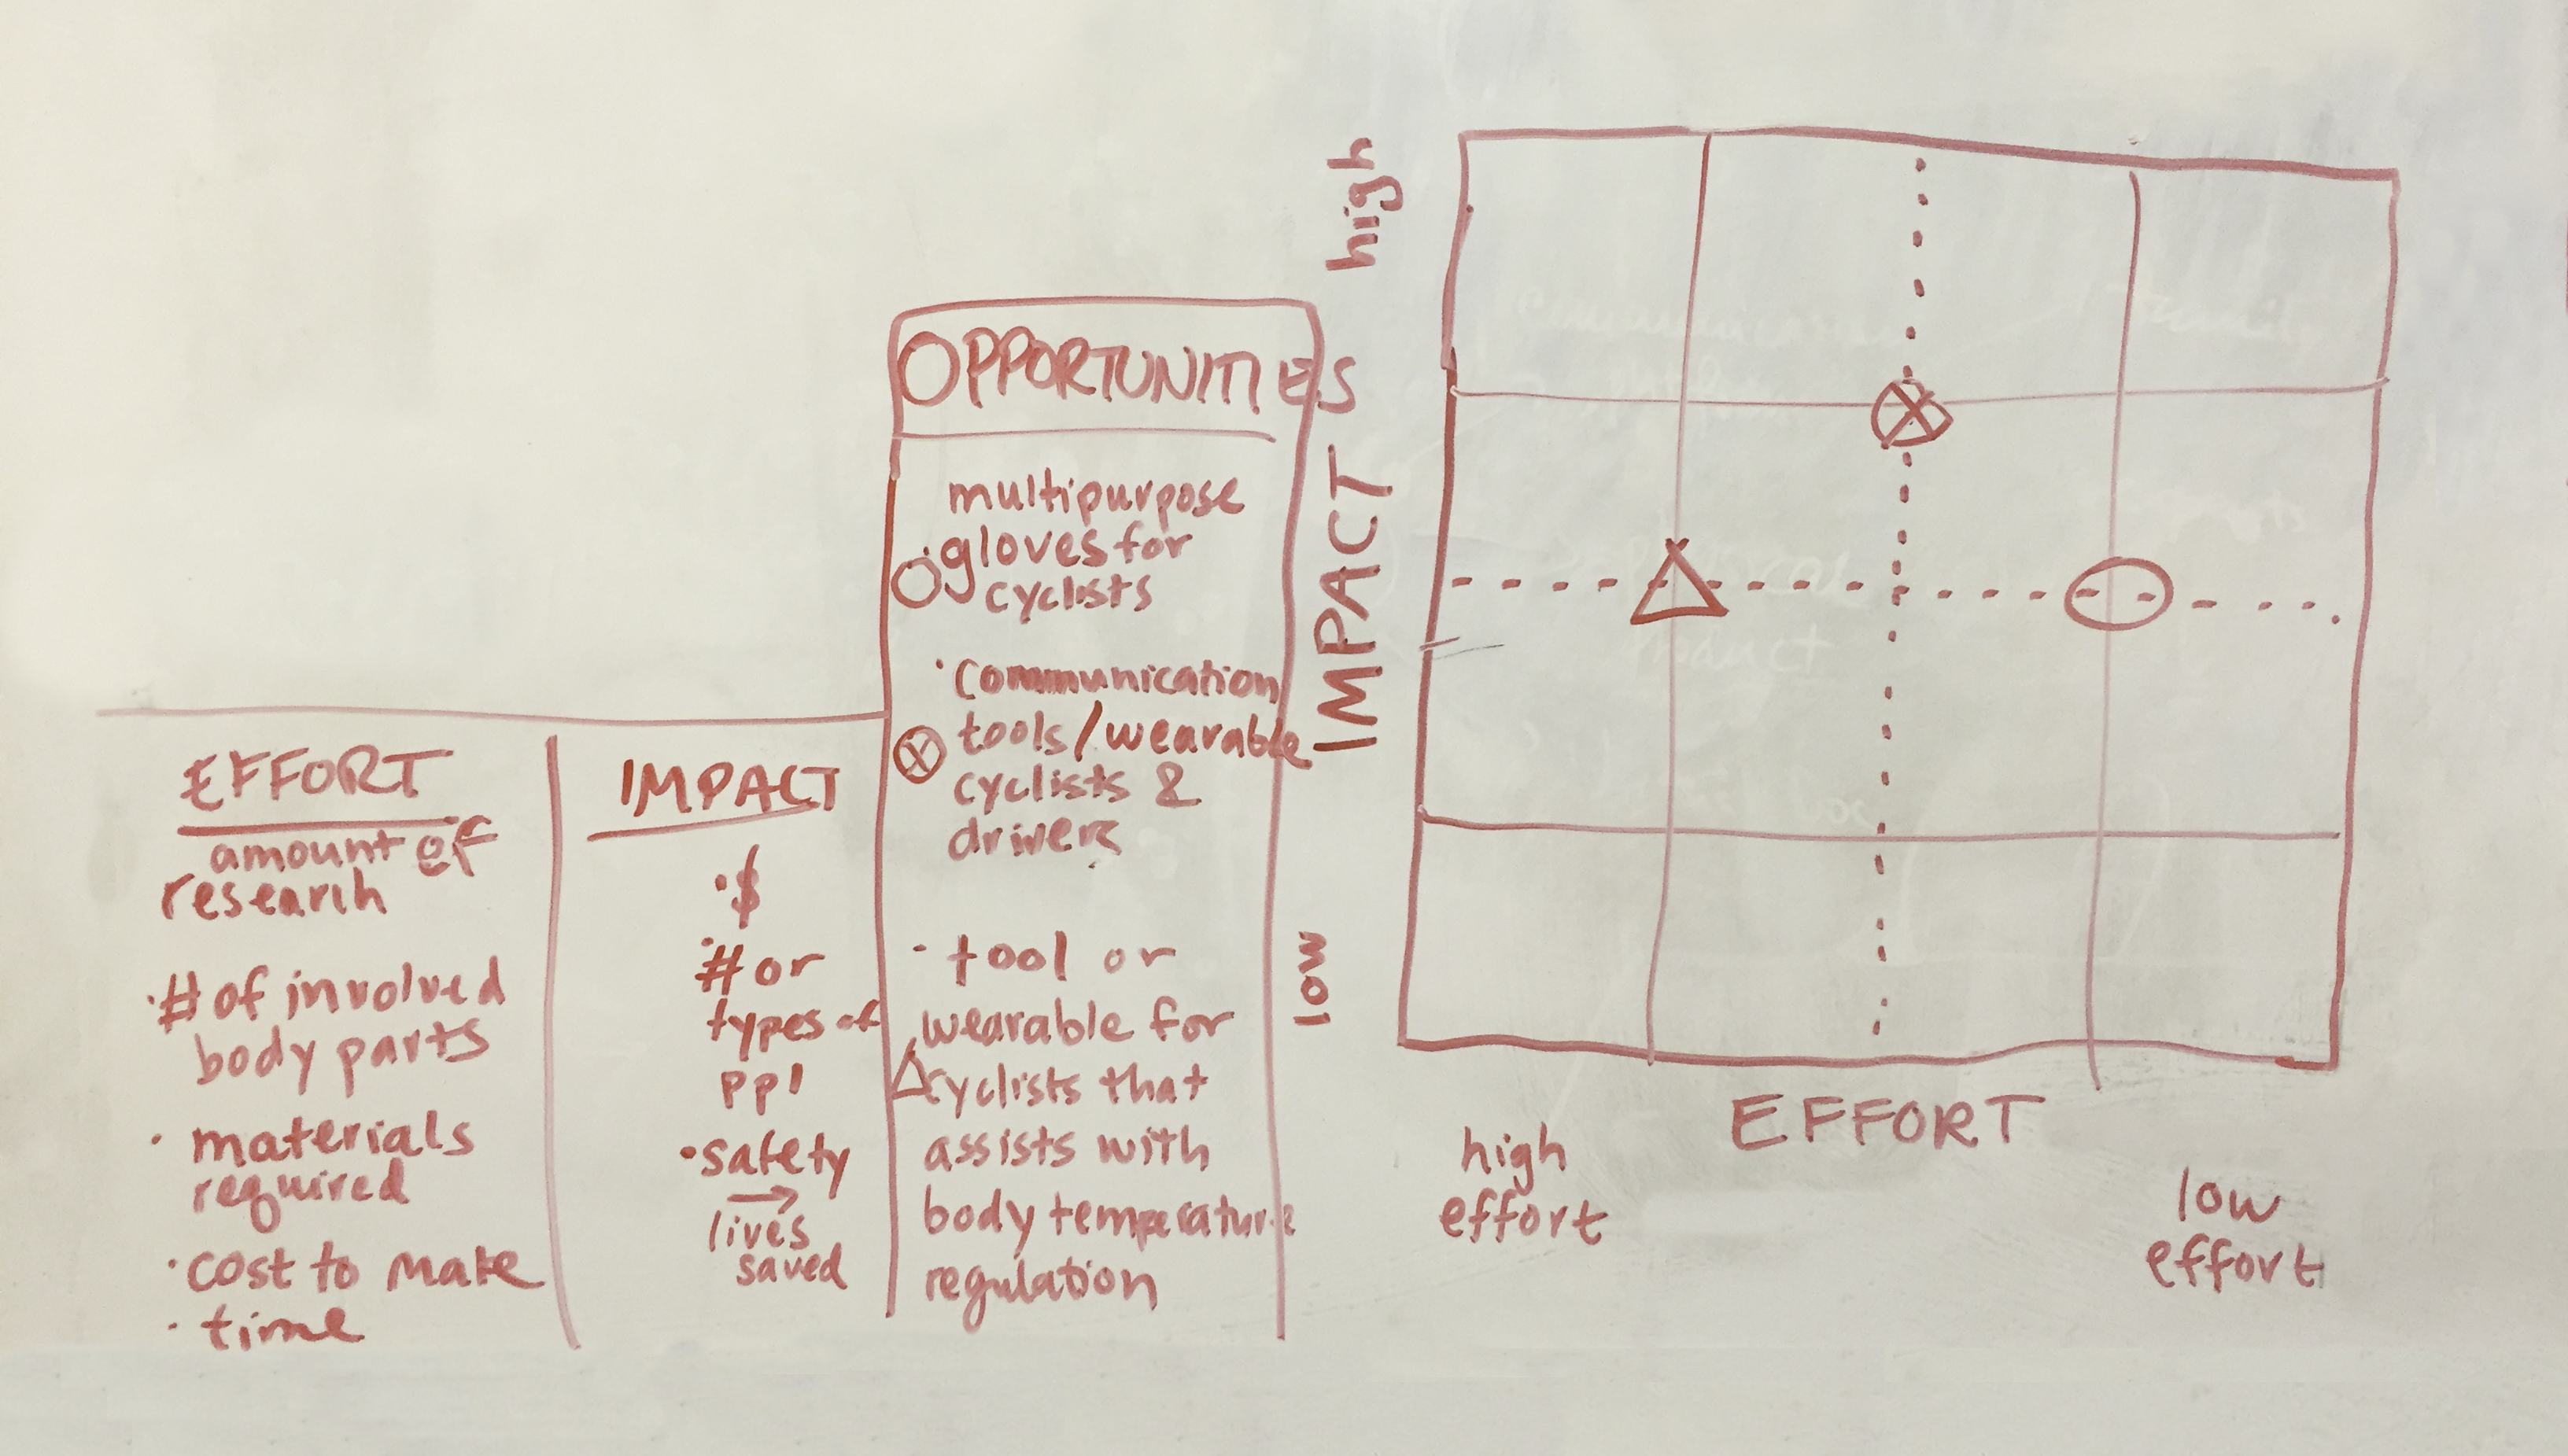 EFFORT
amount of
research
· # of involved
body parts
· materials
required
· cost to make
· time
IMPACT
· $
· # or
types of
ppl
· safety
→
lives
saved
OPPORTUNITIES
multipurpose
· gloves for
cyclists
· communication
tools/wearable
cyclists &
drivers
· tool or
wearable for
cyclists that
assists with
body temperature
regulation
high
IMPACT
low
EFFORT
high
effort
low
effort